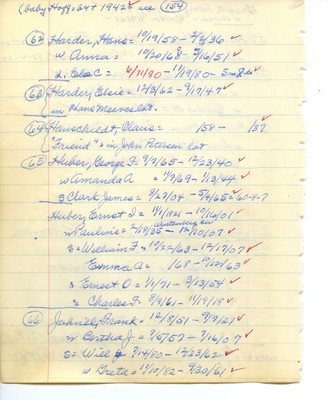 (baby Hoff 64 + 1942 see 154)
62 Harder, Hans = 10/19/58 - 2/8/36
w Anna = 10/20/68 - 7/16/51
d. Elsa C = 6/11/80 - 1/19/80 -
63 Harder, Elsie = 12/3/62 - 9/17/47
in Hans Meewes lot.
64 Hanschildt, Claus = 158 - 137
"Friend" in John Petersen lot
65 Huber, George F. 9/7/65 - 12/23/40
w Amanda A = 1/9/69 - 1/13/44
S Clark James = 9/27/04 - 5/4/65 = 60-8-7
Huber, Ernest I = 1/1/1821 - 10/16/01
w Pauline = 2/19/35 - 12/10/07
S = William F. = 10/22/63 - 12/17/07
Emma A = 168 - 10/22/63
S Ernest O = 1/1/71 - 3/13/54
S Charles F. 8/9/61 - 11/19/18
66 Frank = 12/8/51 - 9/9/21
w Bertha J = 2/5/57 - 7/16/07
S = Will 9/14/80 - 12/23/62
w Greta = 11/10/82 - 9/30/61